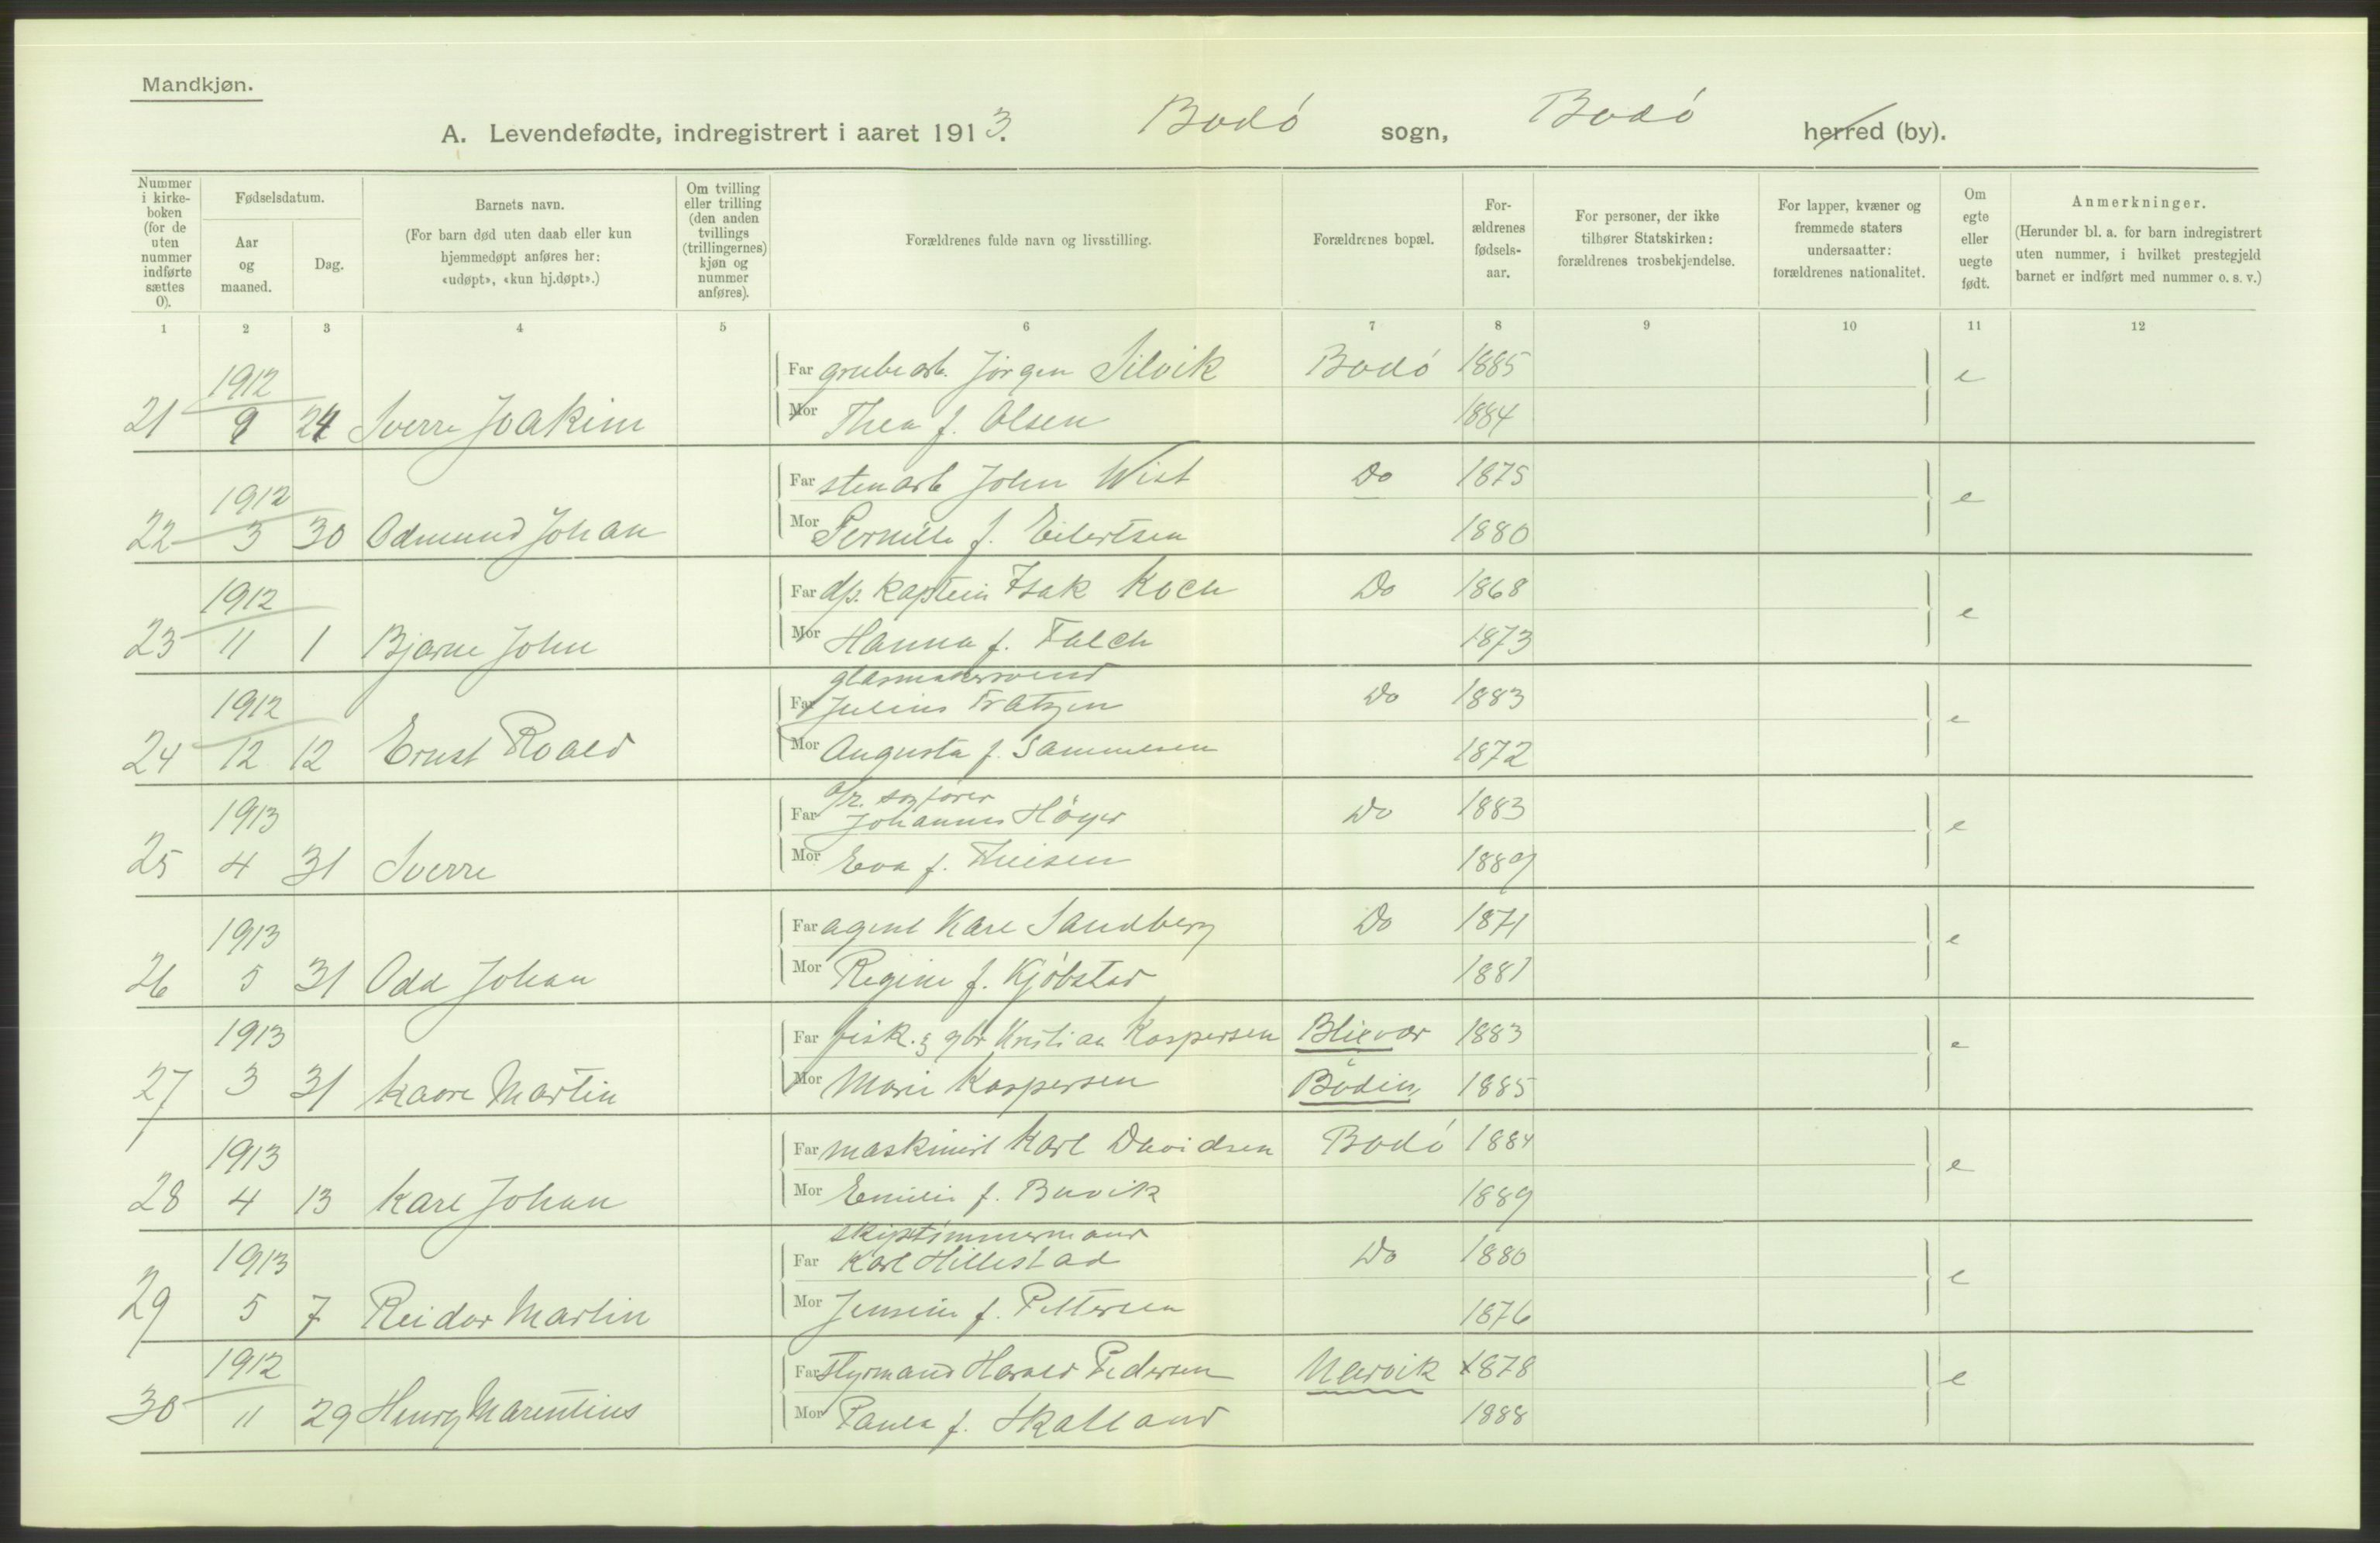 Mandkjøn.
A. Levendefødte, indregistrert i aaret 1913. Bodó sogn, Bodó herred (by).
Nummer i kirke-boken (for de uten nummer indførte sættes 0).
Fødselsdatum.
Aar og maaned.
Dag.
Barnets navn.
(For barn død uten daab eller kun hjemmedøpt anføres her: «udøpt», «kun hj.døpt».)
Om tvilling eller trilling (den anden tvillings (trillingernes) kjøn og nummer anføres).
Forældrenes fulde navn og livsstilling.
Forældrenes bopæl.
For-ældrenes fødsels-aar.
For personer, der ikke tilhører Statskirken: forældrenes trosbekjendelse.
For lapper, kvæner og fremmede staters undersaatter: forældrenes nationalitet.
Om egte eller uegte født.
Anmerkninger.
(Herunder bl. a. for barn indregistrert uten nummer, i hvilket prestegjeld barnet er indført med nummer o. s. v.)
1 2 3 4 5 6 7 8 9 10 11 12
1912 Far grubearb. Jörgen Silvik Bodó 1885 e
21 9 24 Sverre Joakim Mor Thea f. Olsen 1884
1912 Far stenarb John Wist Do 1875 e
22 3 30 Odmund Johan Mor Pernille f. Eilertsen 1880
1912 Far dp. kaptein Isak Koch Do 1868 e
23 11 1 Bjarne John Mor Hanna f. Falch 1873
glasmakersvend
1912 Far Julius Do 1883 e
24 12 12 Ernst Roald Mor Augusta f. 1872
sagfører
1913 Far Johannes Höyer Do 1883 e
25 4 31 Sverre Mor Eva f. 1889
1913 Far agent Karl Sandberg Do 1871 e
26 5 31 Odd Johan Mor Regine f. Kjöbstad 1881
1913 Far fisk. & gbr Kristian Kaspersen Blievær 1883 e
27 3 31 Kaare Martin Mor Marie Kaspersen Bodin 1885
1913 Far maskinist Karl Davidsen Bodó 1884 e
28 4 13 Karl Johan Mor Emilie f. Buvik 1889
skipstimmermand
1913 Far Karl Hillestad Do 1880 e
29 5 7 Reidar Martin Mor Jensine f. Pettersen 1876
1912 Far styrmand Harald Pedersen Narvik 1878 e
30 11 29 Henry Marentius Mor Paula f. Skalland 1888